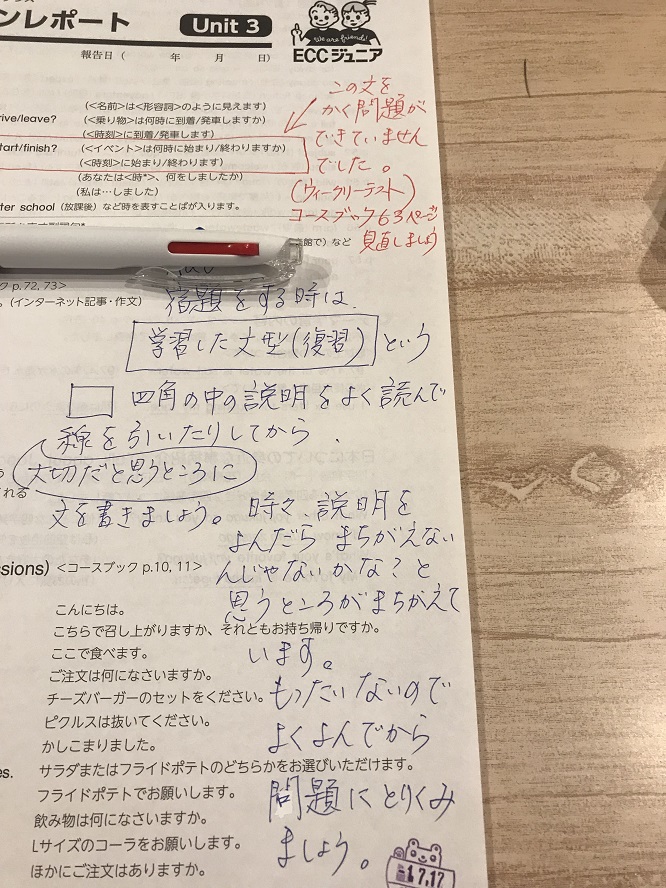 ンレポート Unit 3
We are friends!
ECCジュニア
報告日( 年 月 日)
この文を
かく問題が
できていません
でした。
(ウィークリーテスト)
コースブック63ページ
見直しましょう
(<名前>は<形容詞>のように見えます)
rive/leave? (<乗り物>は何時に到着/発車しますか)
(<時刻>に到着/発車します)
tart/finish? (<イベント>は何時に始まり/終わりますか)
(<時刻>に始まり/終わります)
(あなたは<時*>、何をしましたか)
(私は…しました)
ter school (放課後) など時を表すことばが入ります。
館で) など
ク p.72, 73>
。(インターネット記事・作文)
宿題をする時は、
学習した文型(復習) という
四角の中の説明をよく読んで
線を引いたりしてから、
大切だと思うところに
文を書きましょう。時々、説明を
よんだら まちがえない
んじゃないかな?と
思うところがまちがえて
います。
もったいないので
よくよんでから
問題にとりくみ
ましょう。
される
ssions) <コースブック p.10, 11>
こんにちは。
こちらで召し上がりますか、それともお持ち帰りですか。
ここで食べます。
ご注文は何になさいますか。
チーズバーガーのセットをください。
ピクルスは抜いてください。
かしこまりました。
es. サラダまたはフライドポテトのどちらかをお選びいただけます。
フライドポテトでお願いします。
飲み物は何になさいますか。
Lサイズのコーラをお願いします。
ほかにご注文はありますか。
1.7.17